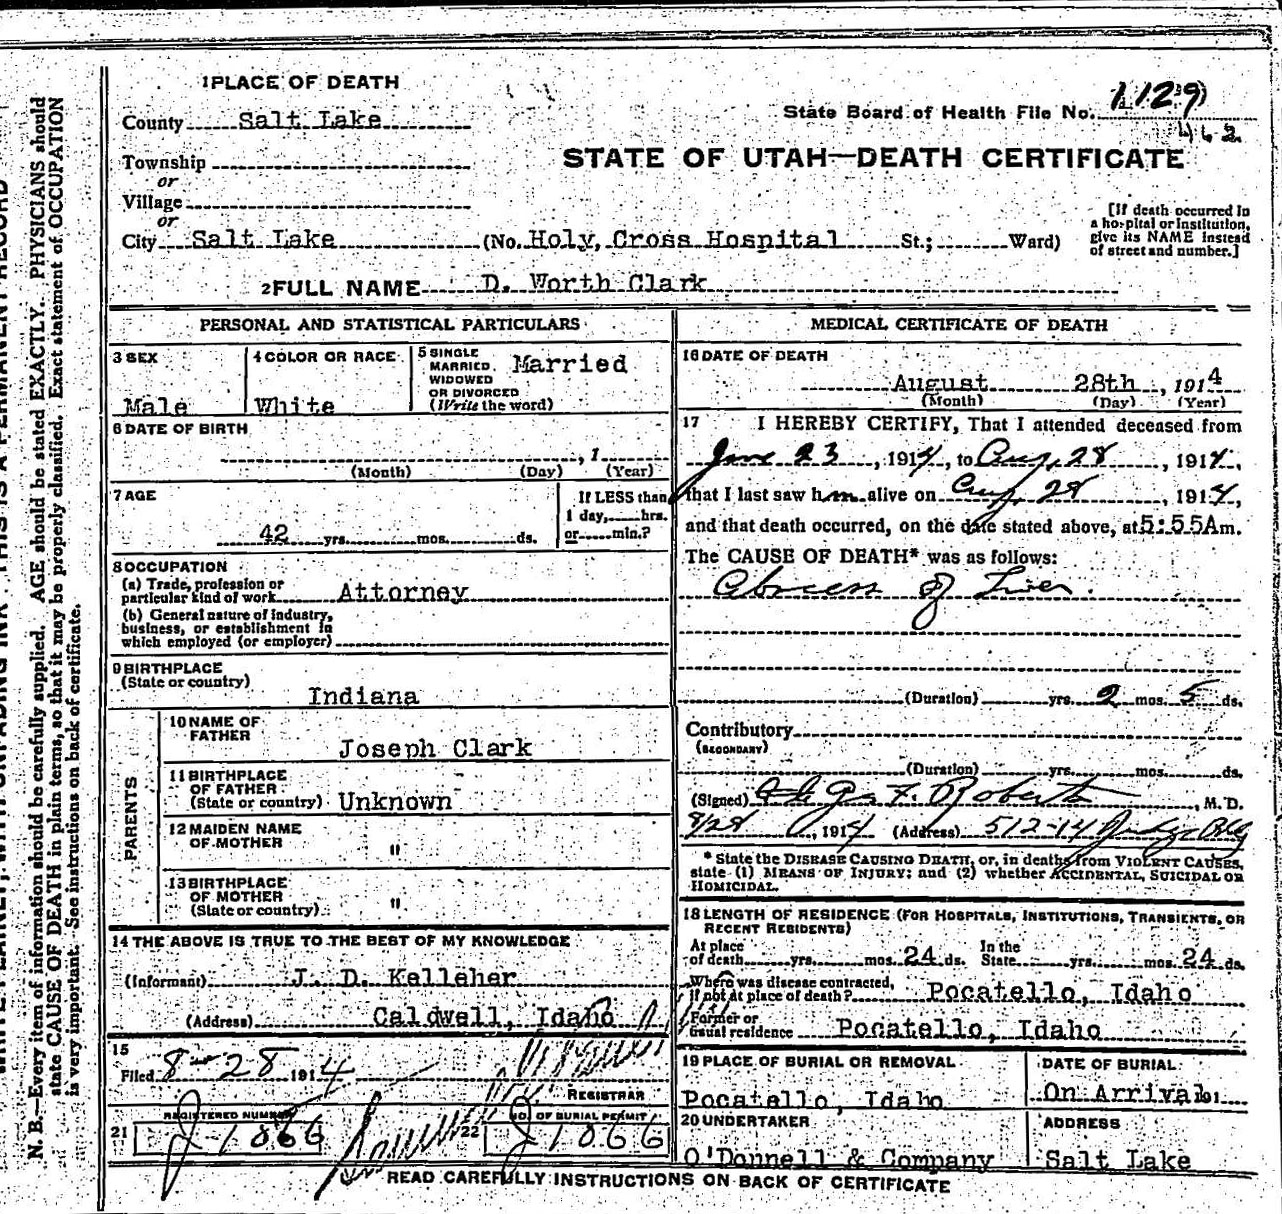 1 PLACE OF DEATH
County Salt Lake
Township
or
Village
or
City Salt Lake (No. Holy, Cross Hospital St.; Ward)
State Board of Health File No. 1129
462
STATE OF UTAH—DEATH CERTIFICATE
[If death occurred in
a hospital or institution,
give its NAME instead
of street and number.]
2 FULL NAME D. Worth Clark
PERSONAL AND STATISTICAL PARTICULARS
3 SEX
Male
4 COLOR OR RACE
White
5 SINGLE
MARRIED,
WIDOWED
OR DIVORCED
(Write the word)
Married
6 DATE OF BIRTH
, 1
(Month) (Day) (Year)
7 AGE
42 yrs. mos. ds.
If LESS than
1 day, hrs.
or min.?
8 OCCUPATION
(a) Trade, profession or
particular kind of work Attorney
(b) General nature of industry,
business, or establishment in
which employed (or employer)
9 BIRTHPLACE
(State or country)
Indiana
PARENTS
10 NAME OF
FATHER
Joseph Clark
11 BIRTHPLACE
OF FATHER
(State or country) Unknown
12 MAIDEN NAME
OF MOTHER "
13 BIRTHPLACE
OF MOTHER
(State or country) "
14 THE ABOVE IS TRUE TO THE BEST OF MY KNOWLEDGE
(Informant) J. D. Kelleher
(Address) Caldwell, Idaho
15
Filed 8-28 1914
REGISTRAR
21 REGISTERED NUMBER
J 1066
22 NO. OF BURIAL PERMIT
J 1066
MEDICAL CERTIFICATE OF DEATH
16 DATE OF DEATH
August 28th, 1914
(Month) (Day) (Year)
17 I HEREBY CERTIFY, That I attended deceased from
June 23, 1914, to Aug, 28, 1914,
that I last saw him alive on Aug, 28, 1914,
and that death occurred, on the date stated above, at 5:55A m.
The CAUSE OF DEATH* was as follows:
Abscess of Liver.
(Duration) yrs. 2 mos. 5 ds.
Contributory
(SECONDARY)
(Duration) yrs. mos. ds.
(Signed) F. Roberts, M. D.
8/28, 1914 (Address) 512-14 Judge Bldg
* State the DISEASE CAUSING DEATH, or, in deaths from VIOLENT CAUSES,
state (1) MEANS OF INJURY; and (2) whether ACCIDENTAL, SUICIDAL OR
HOMICIDAL.
18 LENGTH OF RESIDENCE (FOR HOSPITALS, INSTITUTIONS, TRANSIENTS, OR
RECENT RESIDENTS)
At place
of death yrs. mos. 24 ds. In the
State yrs. mos. 24 ds.
Where was disease contracted,
if not at place of death? Pocatello, Idaho
Former or
usual residence Pocatello, Idaho
19 PLACE OF BURIAL OR REMOVAL
Pocatello, Idaho
DATE OF BURIAL
On Arrival 191
20 UNDERTAKER
O'Donnell & Company
ADDRESS
Salt Lake
READ CAREFULLY INSTRUCTIONS ON BACK OF CERTIFICATE
N. B.—Every item of information should be carefully supplied. AGE should be stated EXACTLY. PHYSICIANS should
state CAUSE OF DEATH in plain terms, so that it may be properly classified. Exact statement of OCCUPATION
is very important. See instructions on back of certificate.